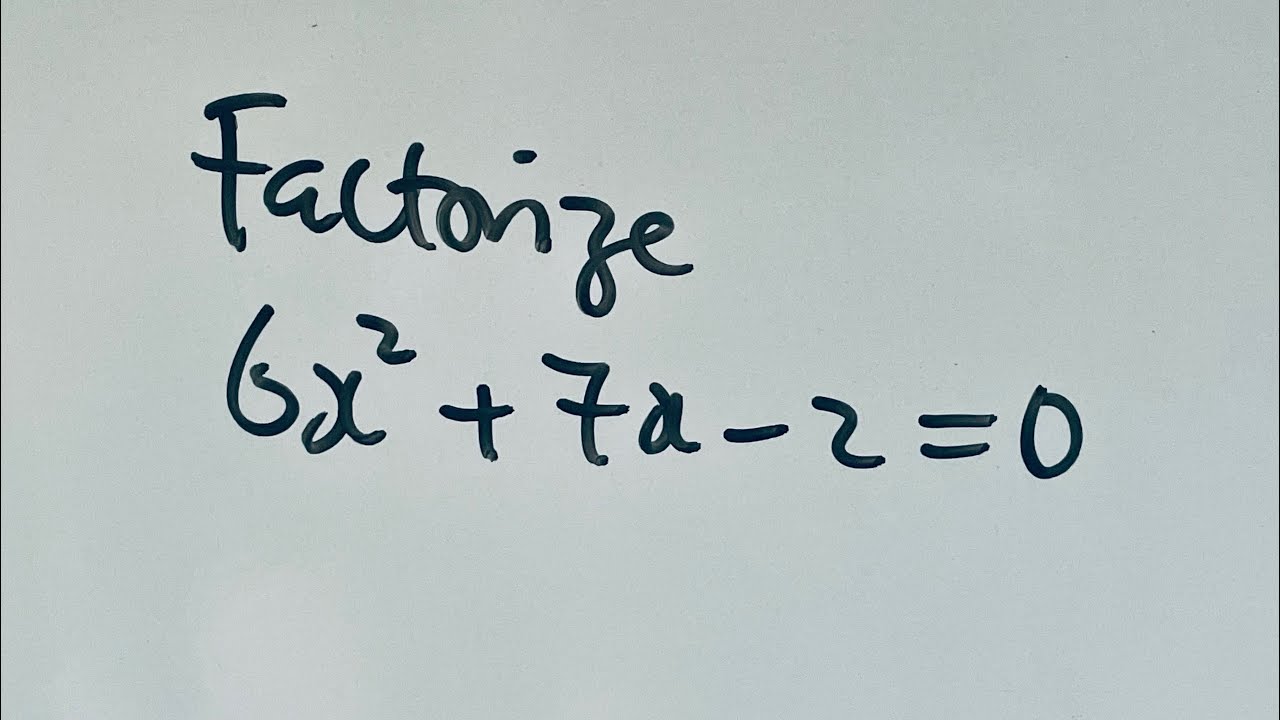 Factorize
6x² + 7x - 2 = 0